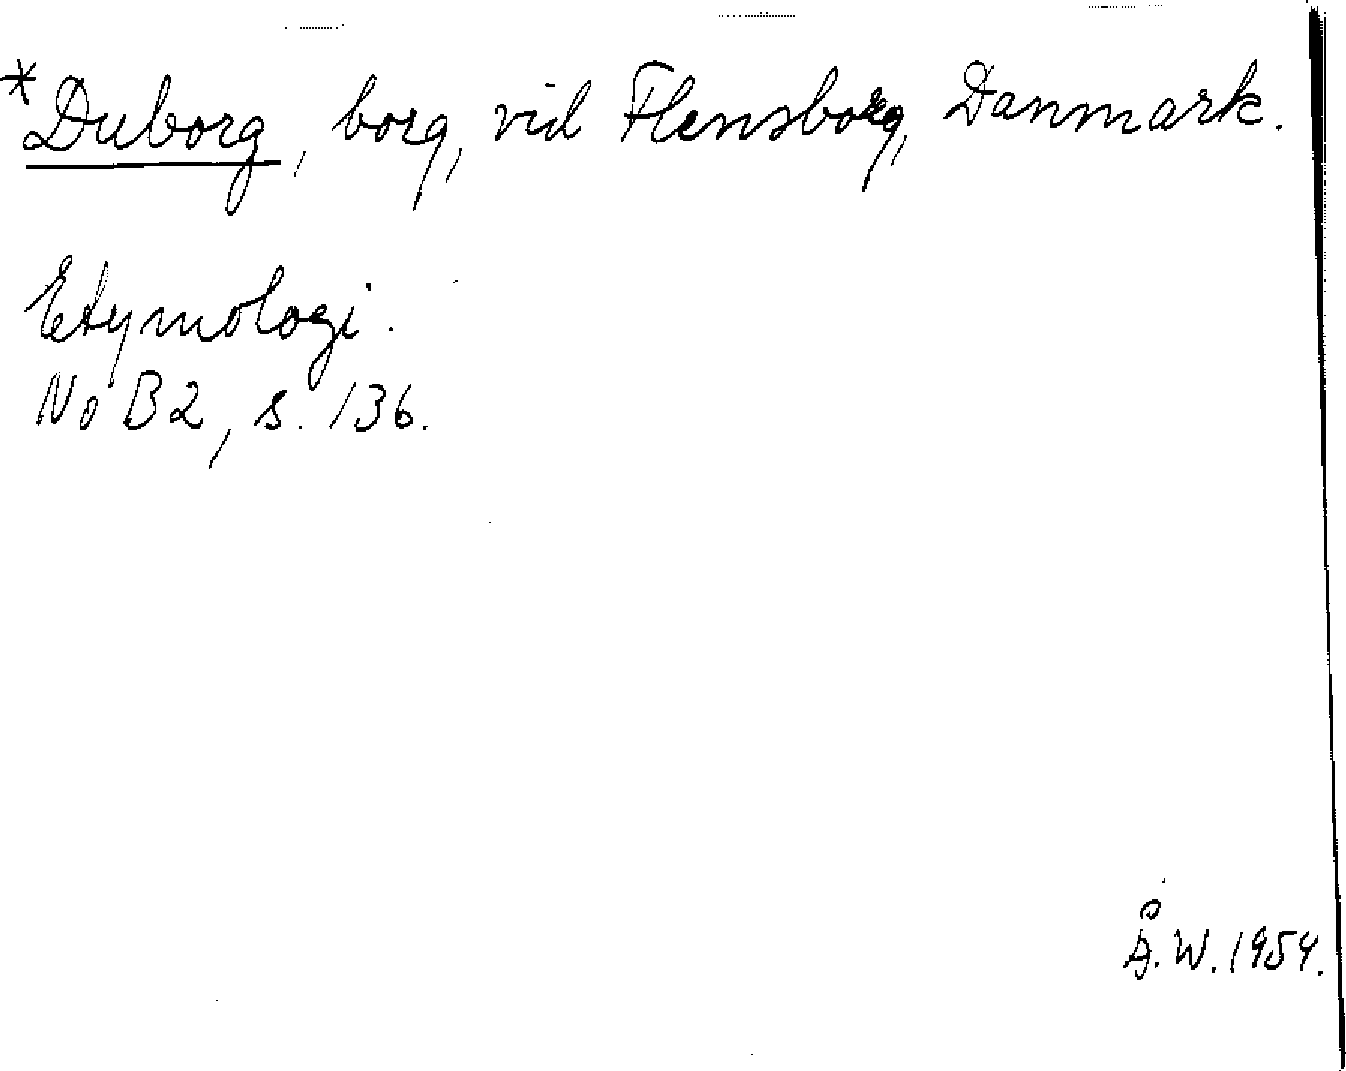 *Duborg, borg, vid Flensborg, Danmark.
Etymologi.
NoB 2, s. 136.
Å. W. 1954.